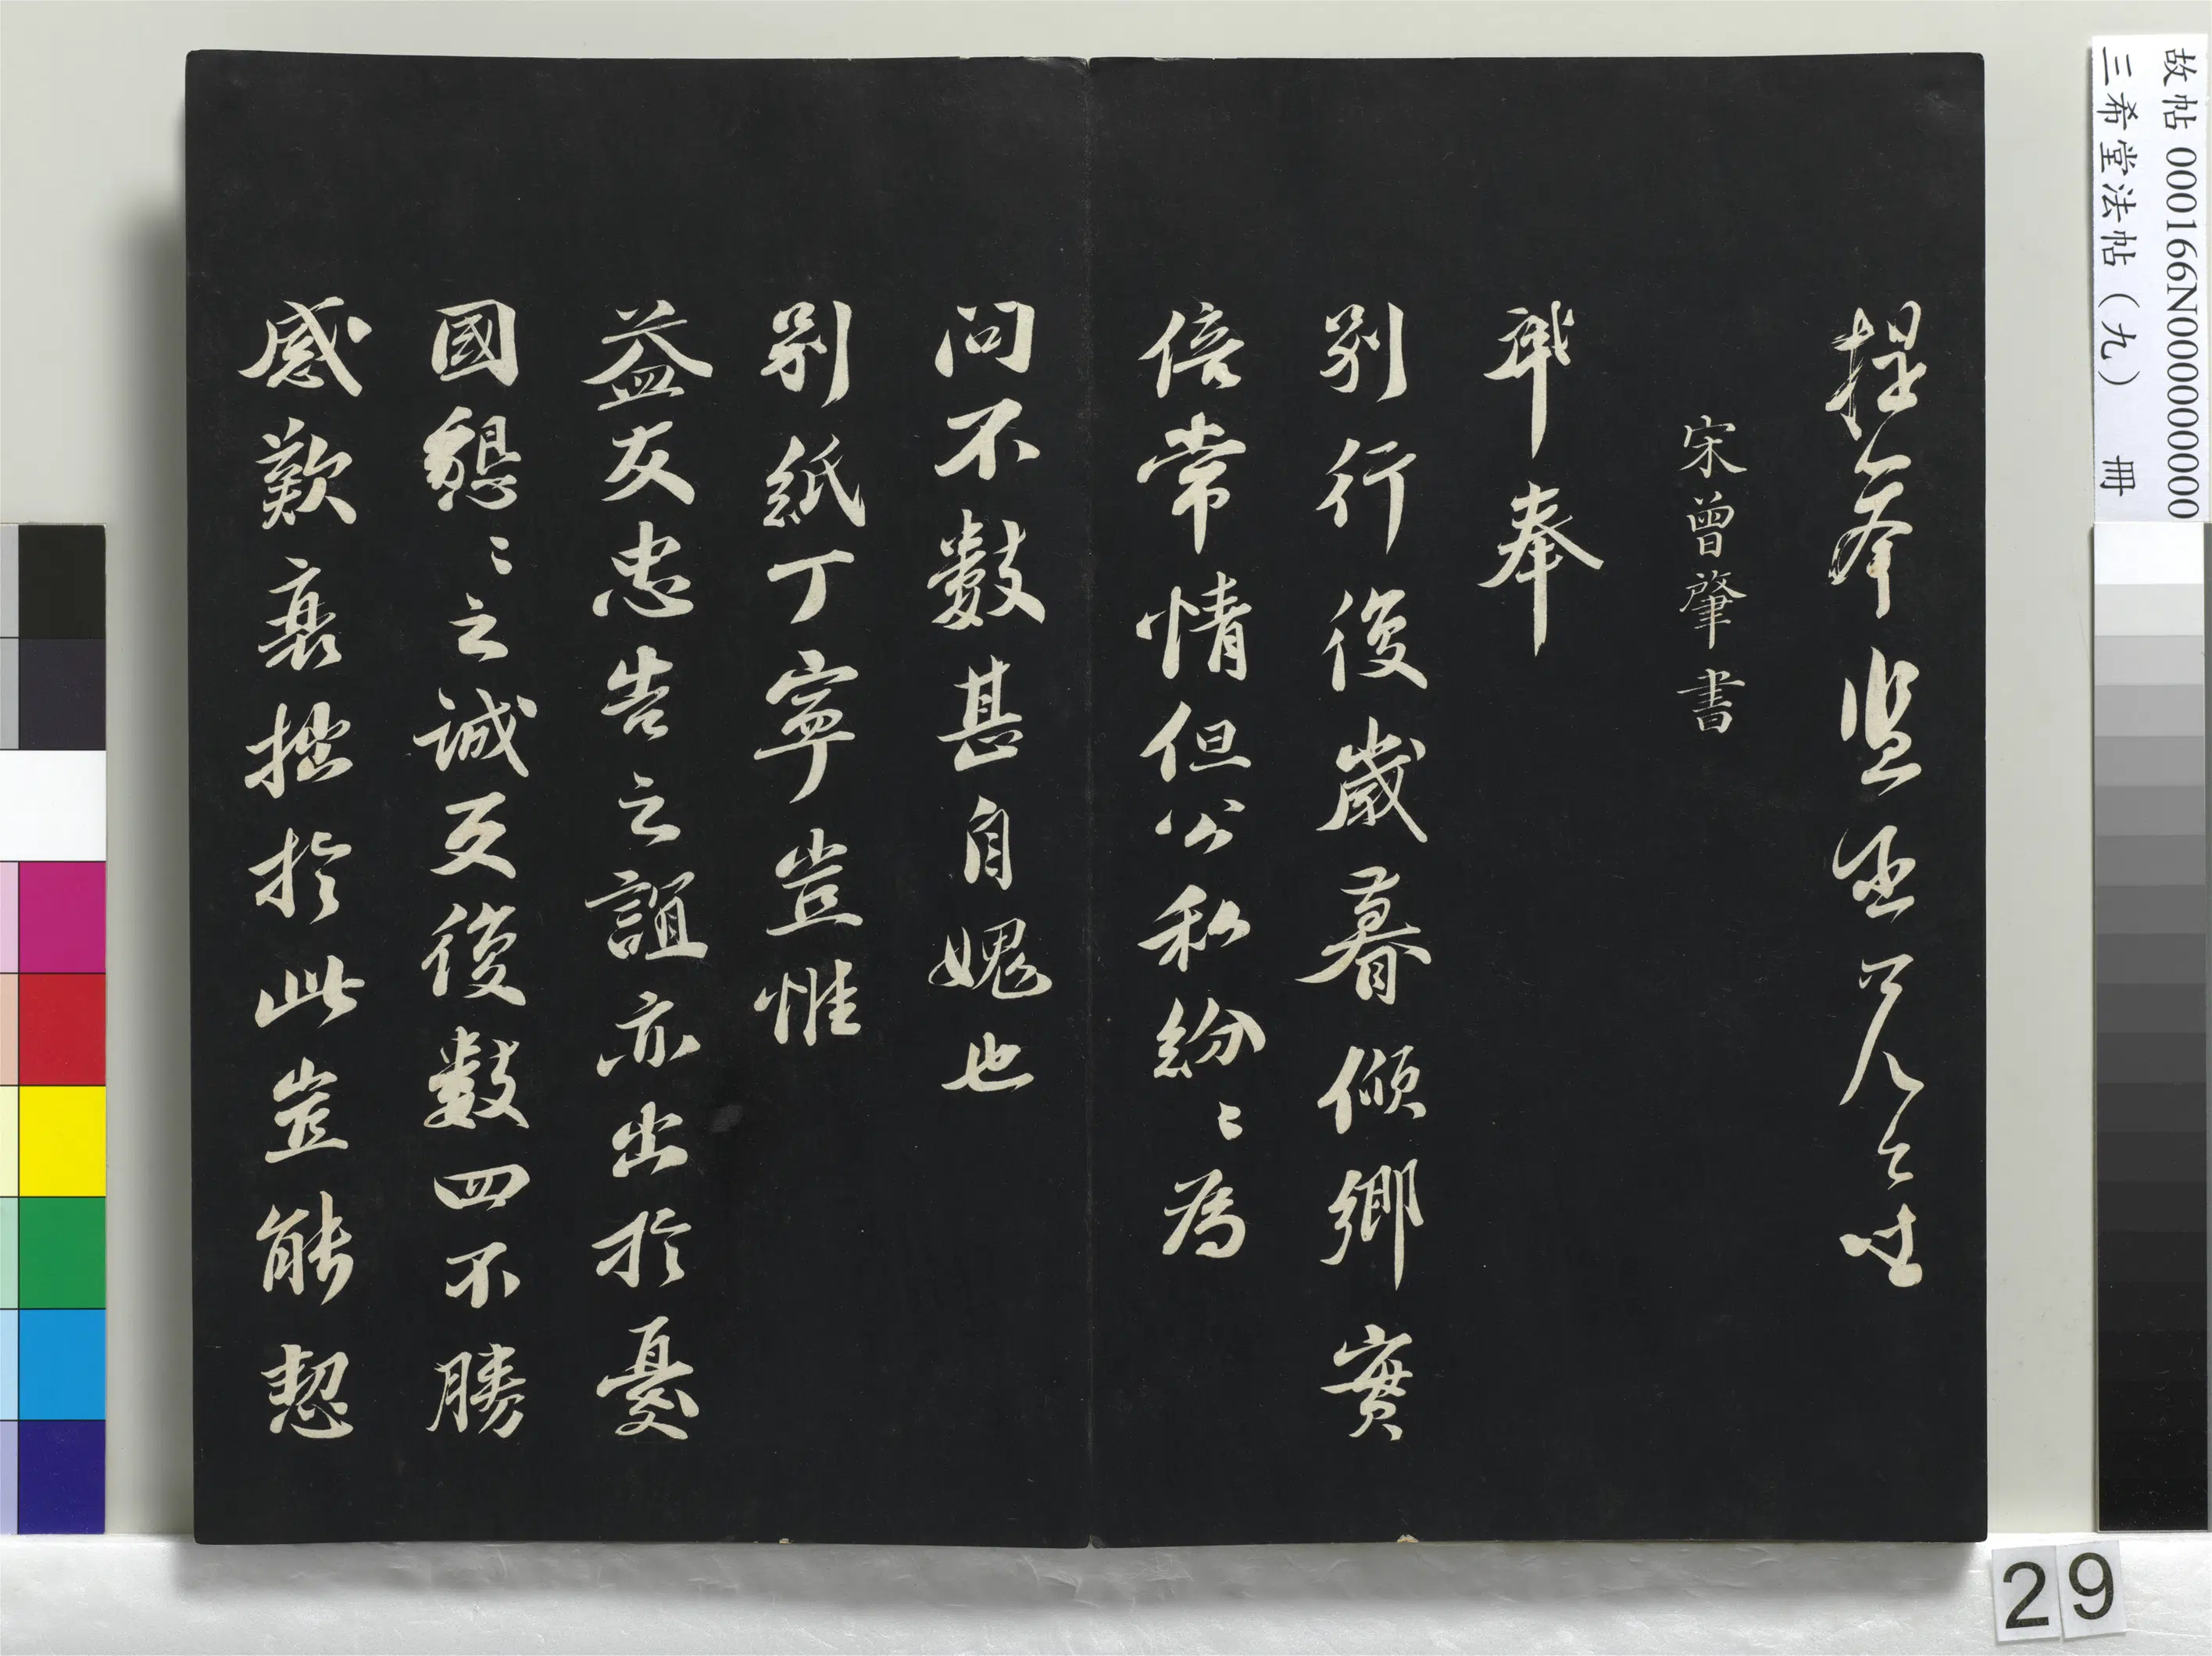 提举監丞兄台坐
宋曾肇書
肇奉
別行復歲暮傾鄉實
倍常情但公私紛〻為
問不數甚自媿也
別紙丁寧豈惟
益友忠告之誼亦出於憂
國懇〻之誠反復數四不勝
感歎衰拙於此豈能恝
故帖 000166N000000000
三希堂法帖（九） 冊
29